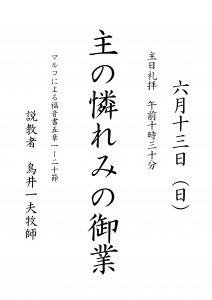 六月十三日（日）
主日礼拝　午前十時三十分
主の憐れみの御業
マルコによる福音書五章一ー二十節
説教者　鳥井一夫牧師